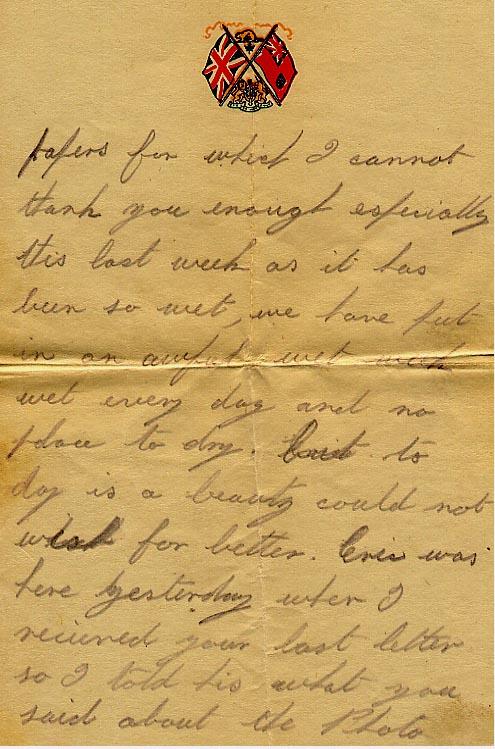 papers for which I cannot
thank you enough especially
this last week as it has
been so wet, we have put
in an awful wet week
wet every day and no
place to dry. But to
day is a beauty could not
wish for better. Eric was
here yesterday when I
recieved your last letter
so I told his what you
said about the Photo